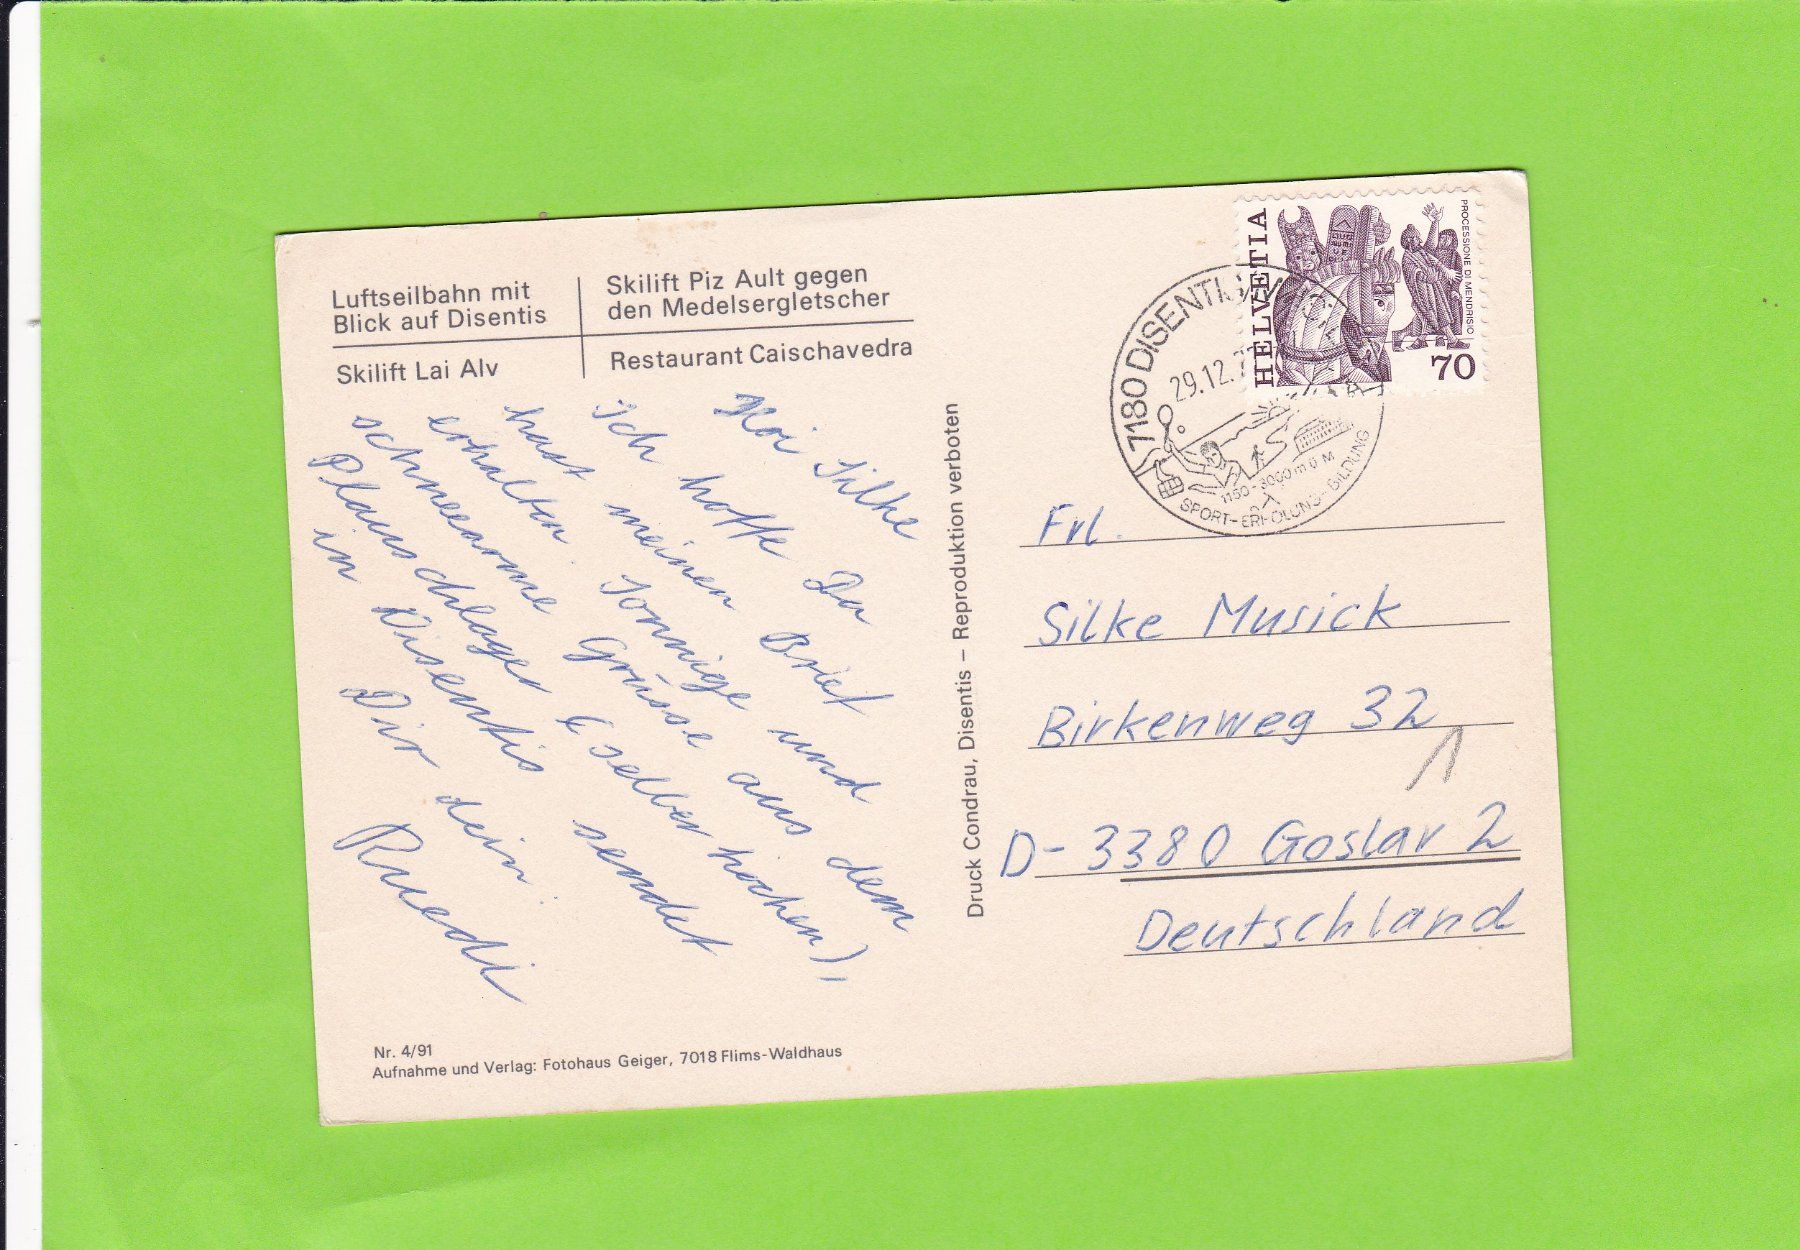 Luftseilbahn mit
Blick auf Disentis
Skilift Piz Ault gegen
den Medelsergletscher
Skilift Lai Alv
Restaurant Caischavedra
Hoi Silke
Ich hoffe Du
hast meinen Brief
erhalten. Sonnige und
schneearme Grüsse aus dem
Plauschlager (selber kochen),
in Disentis sendet
Dir dein
Ruedi
Nr. 4/91
Aufnahme und Verlag: Fotohaus Geiger, 7018 Flims-Waldhaus
Druck Condrau, Disentis – Reproduktion verboten
HELVETIA
PROCESSIONE DI MENDRISIO
70
7180 DISENTIS
29.12.
1150-3000 m ü M
SPORT-ERHOLUNG-BILDUNG
Frl.
Silke Musick
Birkenweg 32
D-3380 Goslar 2
Deutschland